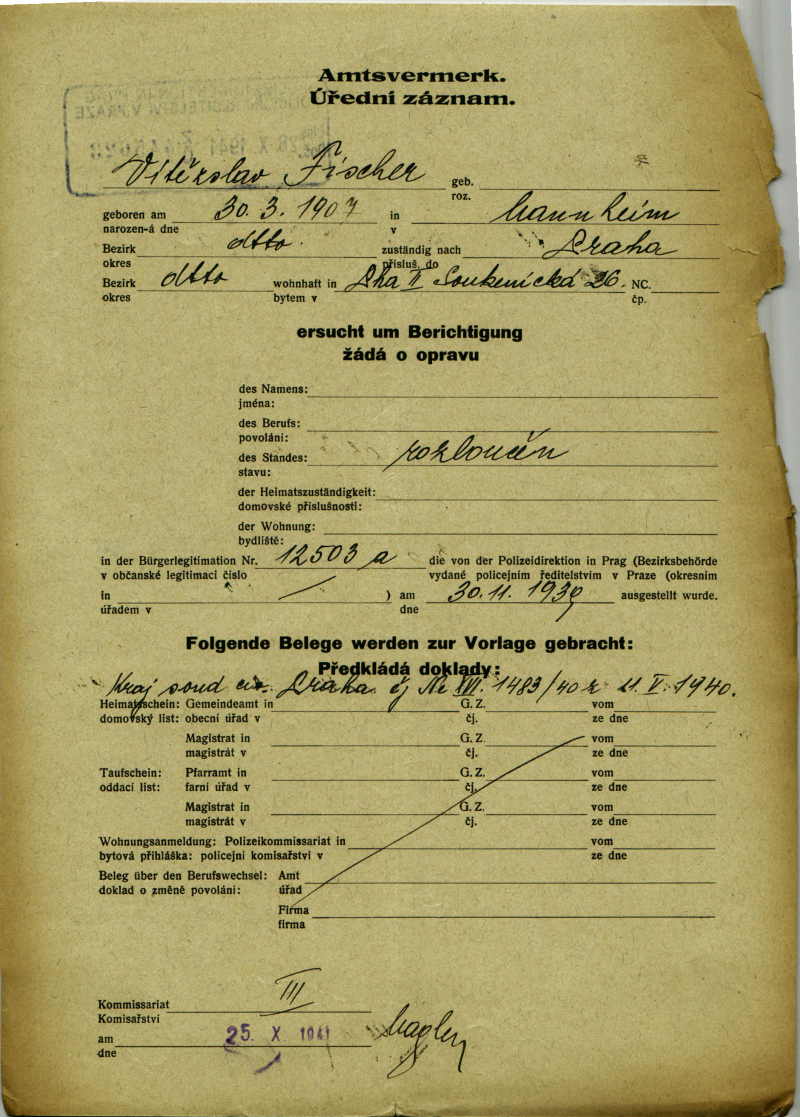 Amtsvermerk.
Úřední záznam.
Vítěslav Fischer geb.
roz.
geboren am 30. 3. 1907 in Mannheim
narozen-á dne v
Bezirk dtto. zuständig nach Praha
okres přísluš. do
Bezirk dtto wohnhaft in Pha II Soukenická 26. NC.
okres bytem v čp.
ersucht um Berichtigung
žádá o opravu
des Namens:
jména:
des Berufs:
povolání:
des Standes: rozloučen
stavu:
der Heimatszuständigkeit:
domovské příslušnosti:
der Wohnung:
bydliště:
in der Bürgerlegitimation Nr. 12503 a die von der Polizeidirektion in Prag (Bezirksbehörde
v občanské legitimaci číslo vydané policejním ředitelstvím v Praze (okresním
in / ) am 30. 11. 1939 ausgestellt wurde.
úřadem v dne
Folgende Belege werden zur Vorlage gebracht:
Předkládá doklady:
Kraj soud civ. Praha čj Nc VII. 1483/40 z 11. V. 1940.
Heimatschein: Gemeindeamt in G. Z. vom
domovský list: obecní úřad v čj. ze dne
Magistrat in G. Z. vom
magistrát v čj. ze dne
Taufschein: Pfarramt in G. Z. vom
oddací list: farní úřad v čj. ze dne
Magistrat in G. Z. vom
magistrát v čj. ze dne
Wohnungsanmeldung: Polizeikommissariat in vom
bytová přihláška: policejní komisařství v ze dne
Beleg über den Berufswechsel: Amt
doklad o změně povolání: úřad
Firma
firma
Kommissariat III
Komisařství
am 25. X 1941
dne